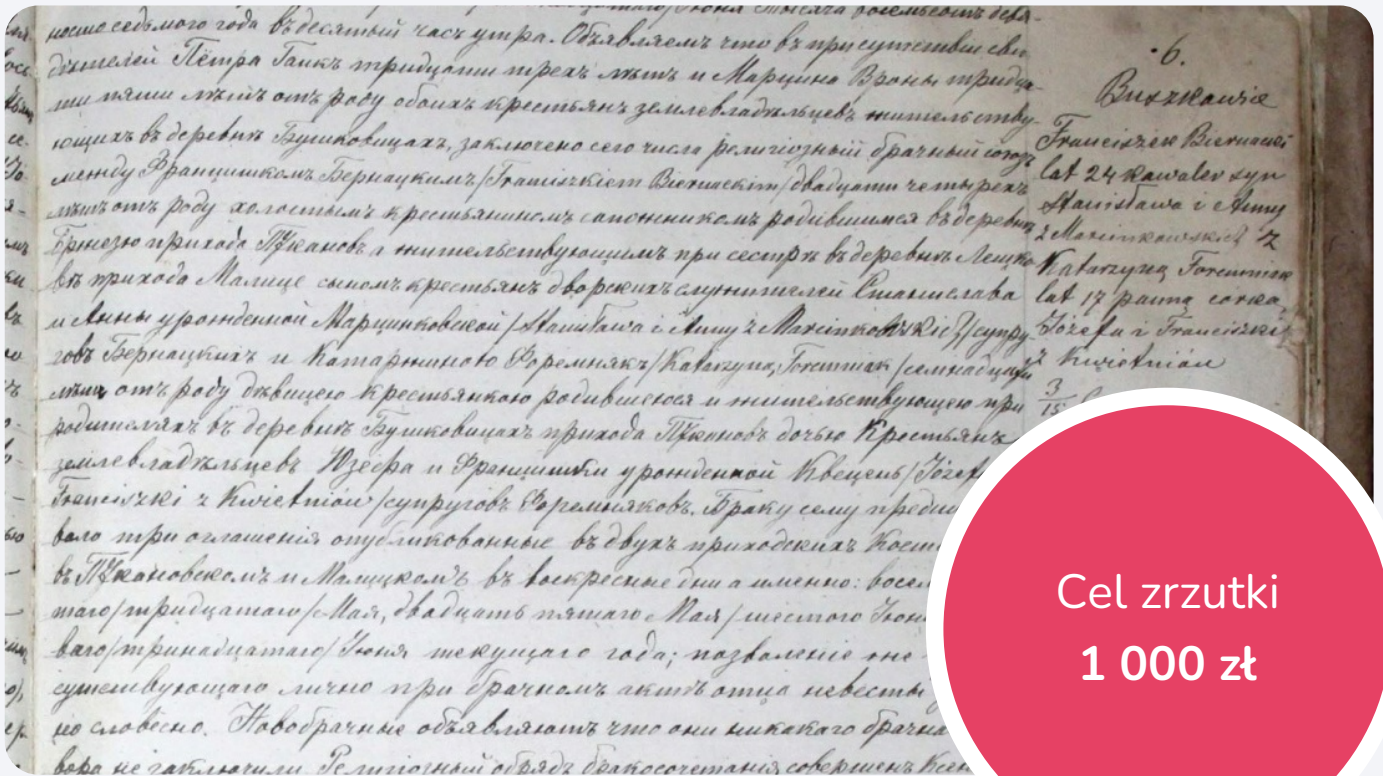 носто седьмого года въ десятый часъ утра. Объявляемъ что въ присутствіи сви-
дѣтелей Пётра Гаикъ тридцати трехъ лѣтъ и Марцина Вроны тридца-
ти пяти лѣтъ отъ роду обоихъ крестьянъ землевладѣльцевъ жительству-
ющихъ въ деревнѣ Бушковицахъ, заключенъ сего числа религіозный брачный союзъ
между Францишкомъ Бернацкимъ /Franciszkiem Biernackim/ двадцати четырехъ
лѣтъ отъ роду холостымъ крестьяниномъ сапожникомъ родившимся въ деревнѣ
прихода а жительствующимъ при сестрѣ въ деревнѣ Лешко-
въ прихода Малице сыномъ крестьянъ дворскихъ служителей Станислава
и Анны урожденной Марцинковской /Stanisława i Anny z Marcinkowskich/ супру-
говъ Бернацкихъ и Катаржиною Форемнякъ /Katarzyną Foremniak/ семнадцати
лѣтъ отъ роду дѣвицею крестьянкою родившеюся и жительствующею при
родителяхъ въ деревнѣ Бушковицахъ прихода дочью Крестьянъ
землевладѣльцевъ Юзефа и Францишки урожденной Квецень /Józefa
Franciszki z Kwietniów/ супруговъ Форемняковъ. Браку сему предше
вало три оглашенія опубликованные въ двухъ приходскихъ Кост
въ и Малицкомъ въ воскресные дни а именно: восем
таго /тридцатаго/ Мая, двадцать пятаго Мая /шестого Іюня
ваго /тринадцатаго/ Іюня текущаго года; позволеніе
существующаго лично при брачномъ актѣ отца невѣсты
но словесно. Новобрачные объявляютъ что они никакого брачна
вора не заключили. Религіозный обрядъ бракосочетанія совершенъ Ксен
·6.
Buszkowice
Franciszek Biernacki
lat 24 kawaler syn
Stanisława i Anny
z Marcinkowskich z
Katarzyną Foremniak
lat 17 panną córką
Józefa i Franciszki
z Kwietniów
3
15
Cel zrzutki
1 000 zł